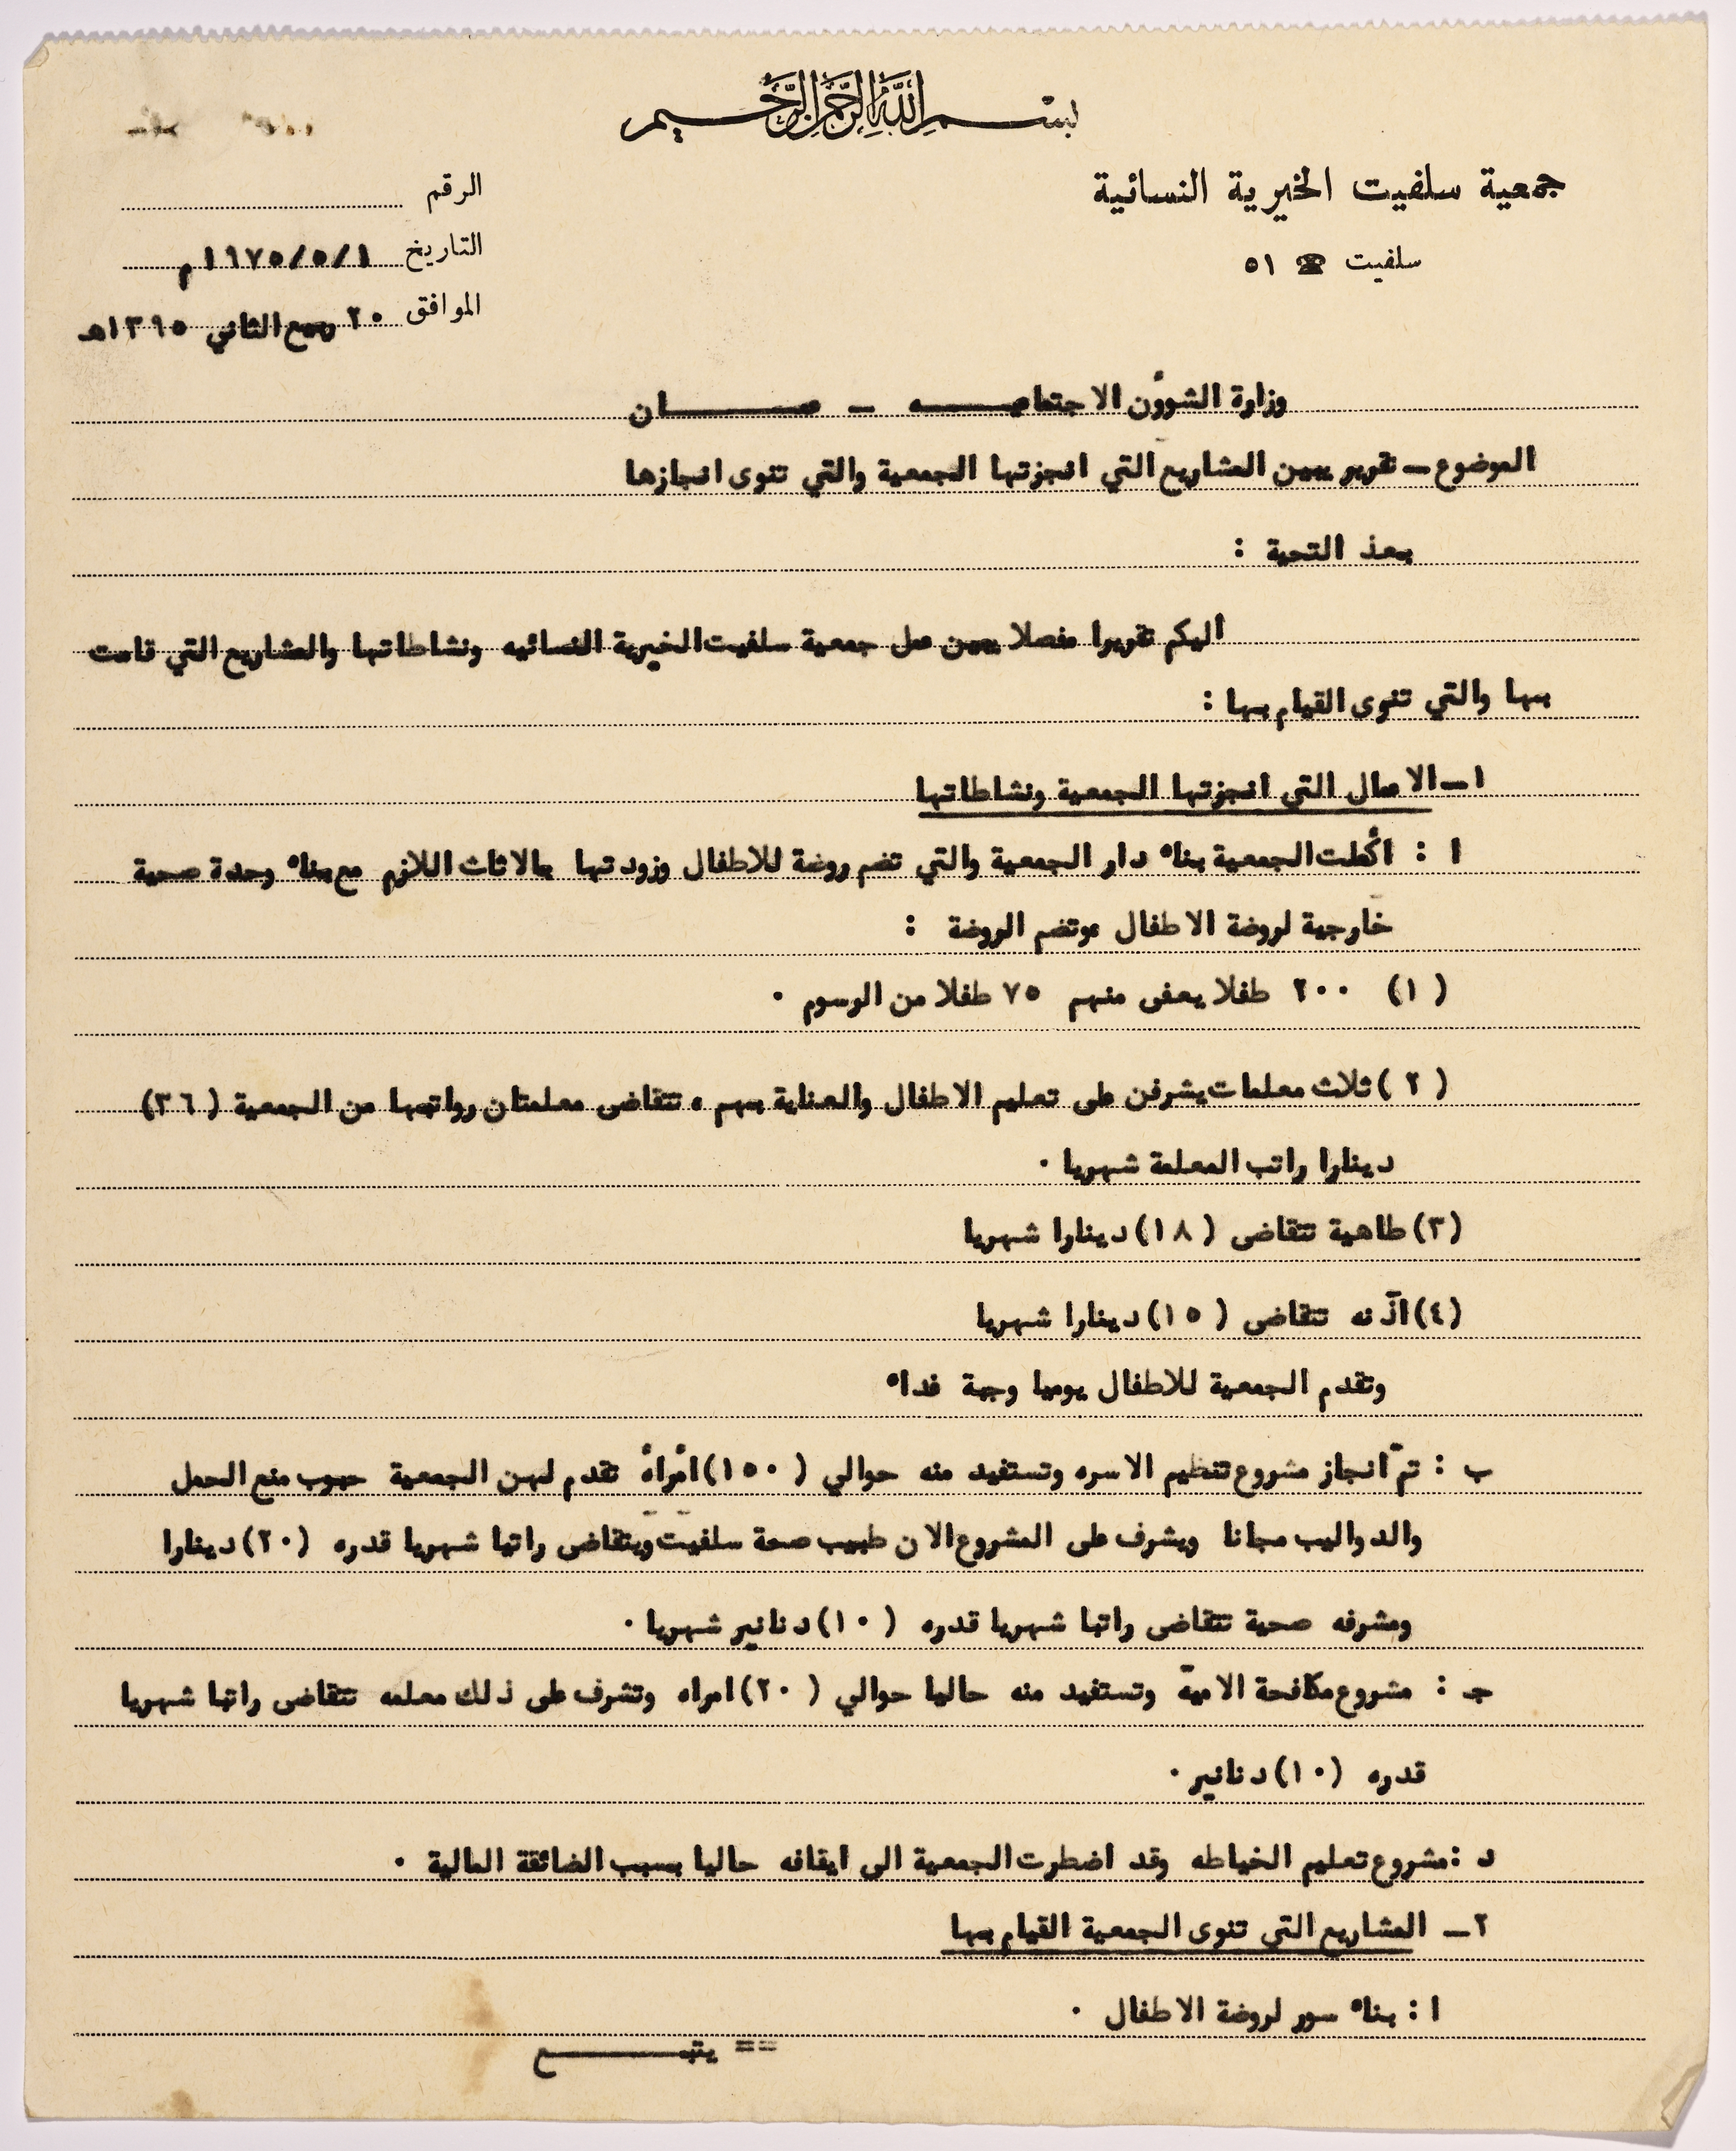 بسم الله الرحمن الرحيم
جمعية سلفيت الخيرية النسائية
سلفيت ☎ ٥١
الرقم
التاريخ ١/٥/١٩٧٥م
الموافق ٢٠ ربيع الثاني ١٣٩٥هـ
وزارة الشوؤن الاجتماعيـــه - عمـــــان
الموضوع - تقرير يبين المشاريع التي انجزتها الجمعية والتي تنوى انجازها
بعذ التحية :
اليكم تقريرا مفصلا يبين عمل جمعية سلفيت الخيرية النسائيه ونشاطاتها والمشاريع التي قامت
بها والتي تنوى القيام بها :
١- الاعمال التي انجزتها الجمعية ونشاطاتها
ا : أكملت الجمعية بناء دار الجمعية والتي تضم روضة للاطفال وزودتها بالاثاث اللازم مع بناء وحدة صحية
خارجية لروضة الاطفال ٠وتضم الروضة :
(١) ٢٠٠ طفلا يعفى منهم ٧٥ طفلا من الرسوم ٠
(٢) ثلاث معلمات يشرفن على تعليم الاطفال والعناية بهم ٠ تتقاضى معلمتان رواتبها من الجمعية (٣٦)
دينارا راتب المعلمة شهريا ٠
(٣) طاهية تتقاضى (١٨) دينارا شهريا
(٤) آذنه تتقاضى (١٥) دينارا شهريا
وتقدم الجمعية للاطفال يوميا وجبة غداء
ب : تمّ انجاز مشروع تنظيم الاسره وتستفيد منه حوالي (١٥٠) امرأة تقدم لهن الجمعية حبوب منع الحمل
والدواليب مجانا ويشرف على المشروع الان طبيب صحة سلفيت ويتقاضى راتبا شهريا قدره (٢٠) دينارا
ومشرفه صحية تتقاضى راتبا شهريا قدره (١٠) دنانير شهريا ٠
جـ : مشروع مكافحة الاميّة وتستفيد منه حاليا حوالي (٢٠) امراه وتشرف على ذلك معلمه تتقاضى راتبا شهريا
قدره (١٠) دنانير ٠
د : مشروع تعليم الخياطه وقد اضطرت الجمعية الى ايقافه حاليا بسبب الضائقة المالية ٠
٢- المشاريع التي تنوى الجمعية القيام بها
ا : بناء سور لروضة الاطفال ٠
== يتبـــــــع